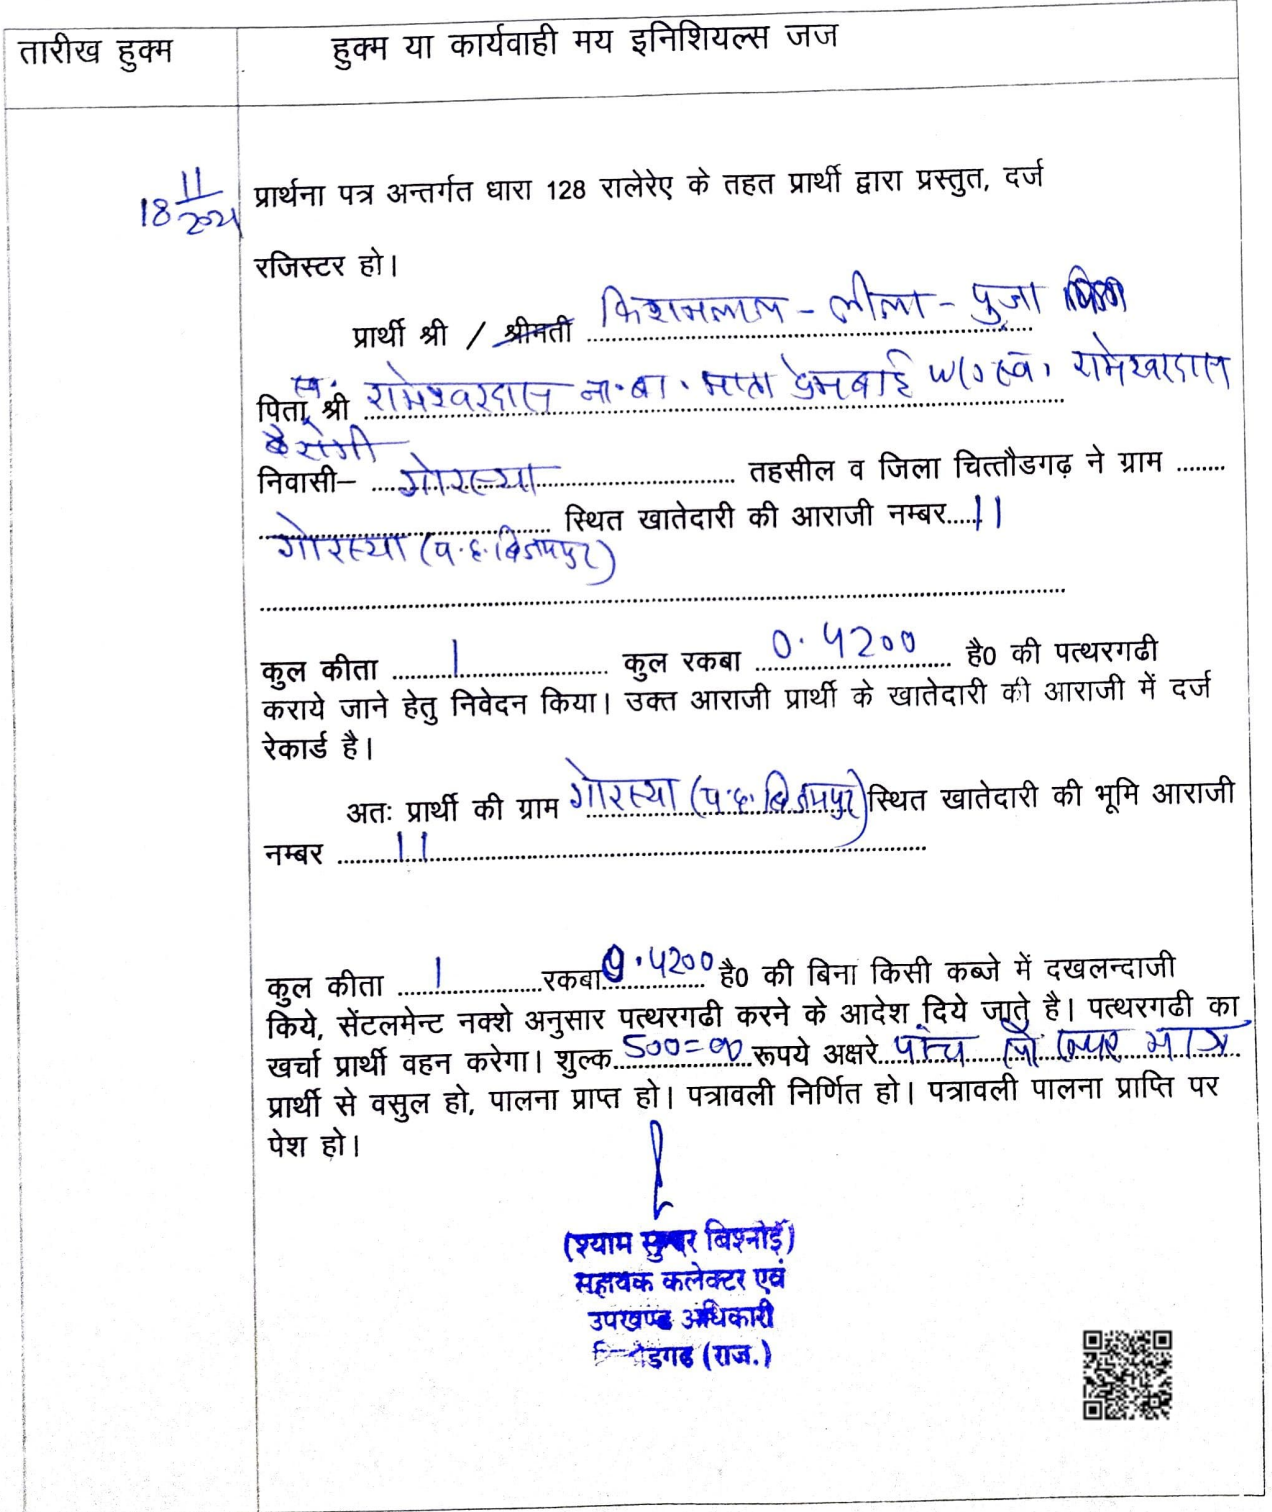 तारीख हुक्म
हुक्म या कार्यवाही मय इनिशियल्स जज
18 11/2021
प्रार्थना पत्र अन्तर्गत धारा 128 रालेरेए के तहत प्रार्थी द्वारा प्रस्तुत, दर्ज
रजिस्टर हो।
प्रार्थी श्री / श्रीमती किशनलाल - लीला - पुजा
पिता स्व. श्री रामेश्वरदास ना.बा. माता प्रेमबाई W/o स्व. रामेश्वरदास
बैरागी
निवासी– गोरस्या तहसील व जिला चित्तौडगढ़ ने ग्राम ........
स्थित खातेदारी की आराजी नम्बर.....11
गोरस्या (प.ह. बिजयपुर)
कुल कीता 1 कुल रकबा 0.4200 है0 की पत्थरगढी
कराये जाने हेतु निवेदन किया। उक्त आराजी प्रार्थी के खातेदारी की आराजी में दर्ज
रेकार्ड है।
अतः प्रार्थी की ग्राम गोरस्या (प.ह. बिजयपुर) स्थित खातेदारी की भूमि आराजी
नम्बर 11
कुल कीता 1 रकबा 0.4200 है0 की बिना किसी कब्जे में दखलन्दाजी
किये, सेंटलमेन्ट नक्शे अनुसार पत्थरगढी करने के आदेश दिये जाते है। पत्थरगढी का
खर्चा प्रार्थी वहन करेगा। शुल्क 500=00 रूपये अक्षरे पांच सो रूपए मात्र
प्रार्थी से वसुल हो, पालना प्राप्त हो। पत्रावली निर्णित हो। पत्रावली पालना प्राप्ति पर
पेश हो।
(श्याम सुन्दर बिश्नोई)
सहायक कलेक्टर एवं
उपखण्ड अधिकारी
(राज.)